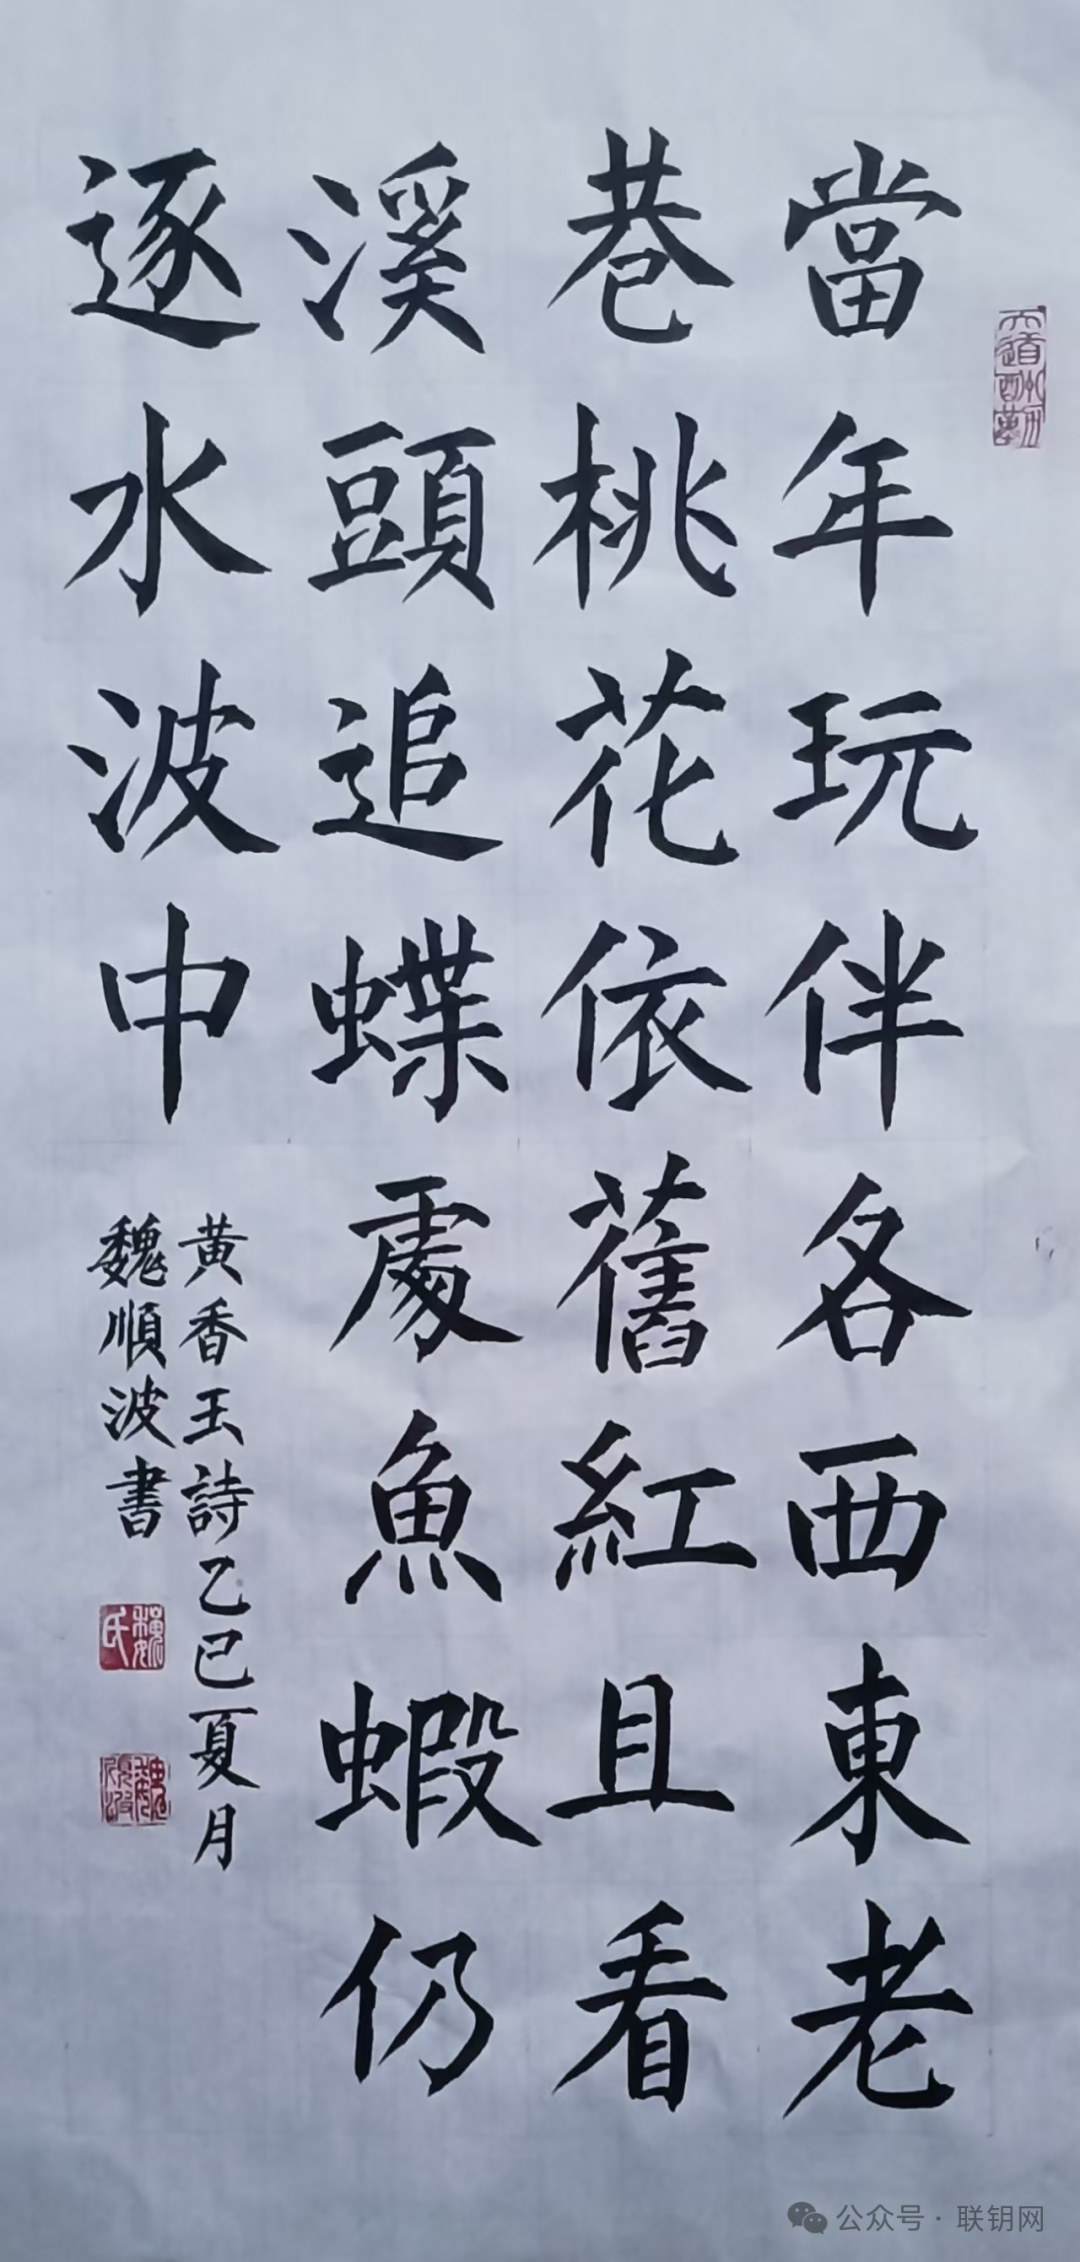 當年玩伴各西東老
巷桃花依舊紅且看
溪頭追蝶處魚蝦仍
逐水波中
黄香玉詩乙巳夏月
魏順波書
魏氏
公众号·联钥网